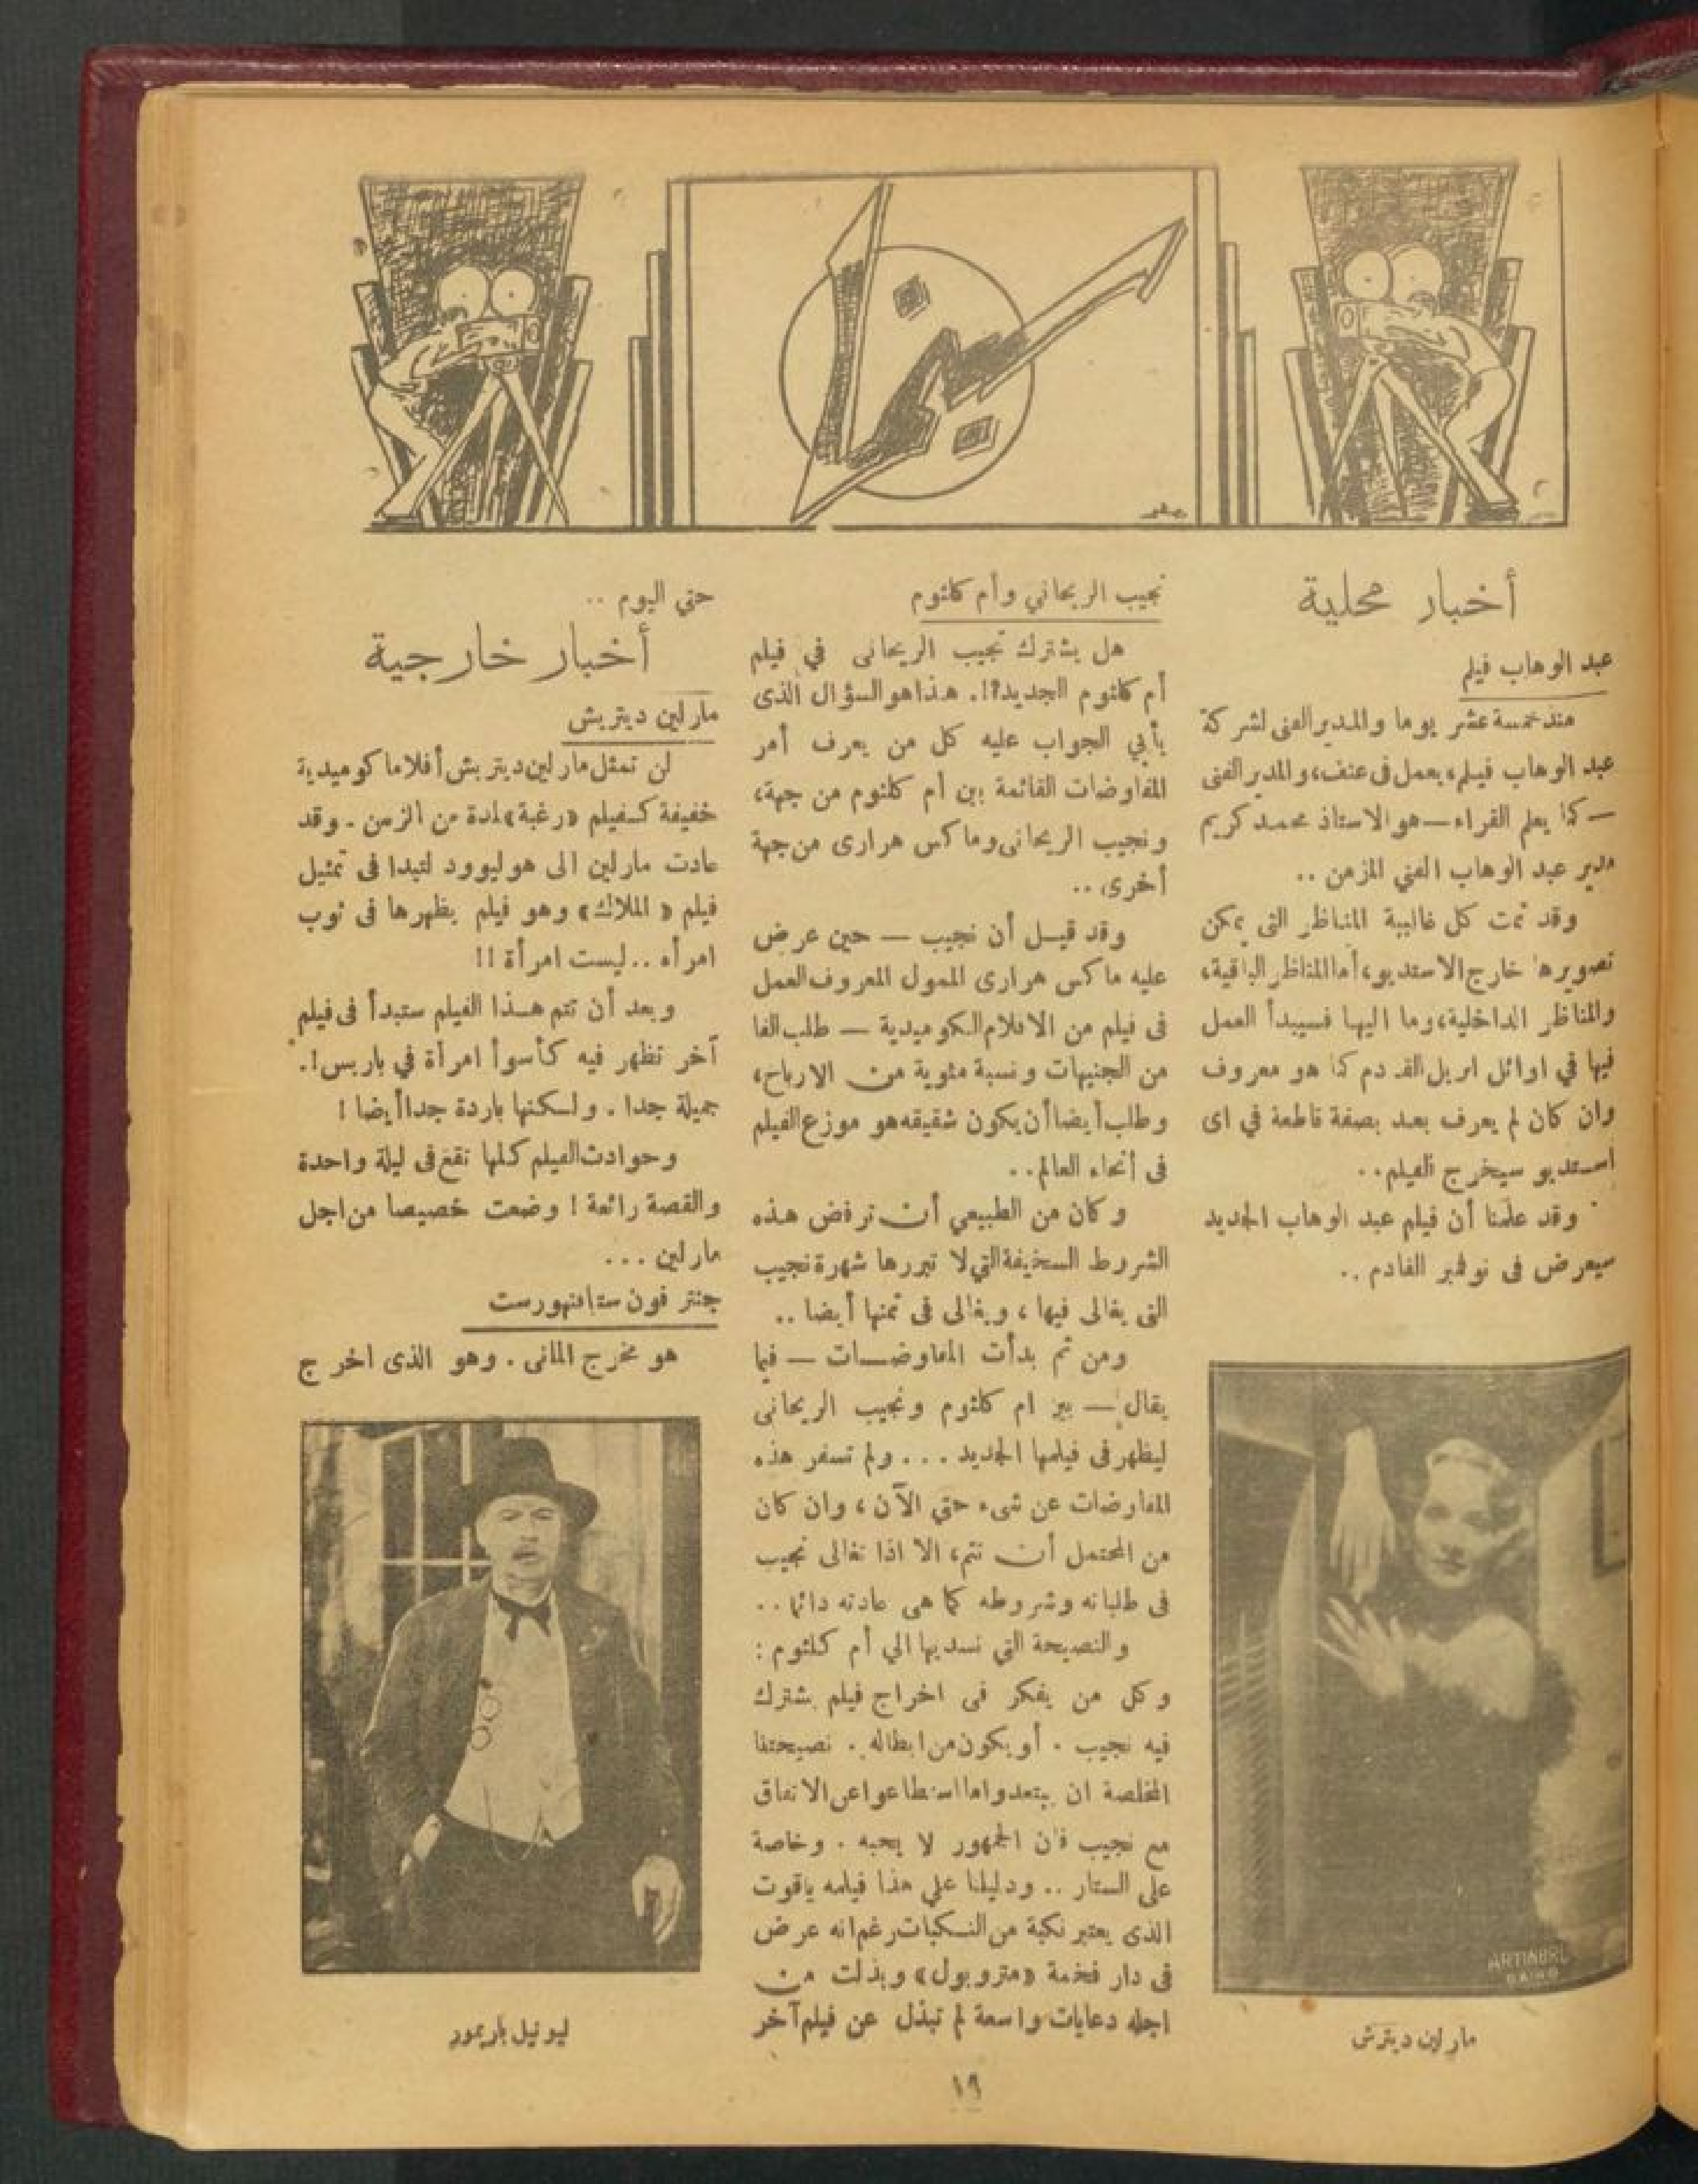 سينما
أخبار محلية
عبد الوهاب فيلم
منذ خمسة عشر يوما والمدير الفنى لشركة
عبد الوهاب فيلم، يعمل فى عنف، والمدير الفنى
— كما يعلم القراء — هو الاستاذ محمد كريم
مدير عبد الوهاب الفني المزمن ..
وقد تمت كل غالبية المناظر التى يمكن
تصويرها خارج الاستديو، أما المناظر الباقية،
والمناظر الداخلية، وما اليها فسيبدأ العمل
فيها في اوائل ابريل القادم كما هو معروف
وان كان لم يعرف بعد بصفة قاطعة في اى
استديو سيخرج الفيلم ..
وقد علمنا أن فيلم عبد الوهاب الجديد
سيعرض فى نوفمبر القادم ..
ARTINBRE
CAIRO
مارلين ديترش
نجيب الريحاني وأم كلثوم
هل يشترك نجيب الريحانى في فيلم
أم كلثوم الجديد؟!. هذا هو السؤال الذى
يأبي الجواب عليه كل من يعرف أمر
المفاوضات القائمة بين أم كلثوم من جهة،
ونجيب الريحانى وماكس هرارى من جهة
أخرى ..
وقد قيل أن نجيب — حين عرض
عليه ماكس هرارى الممول المعروف العمل
فى فيلم من الافلام الكوميدية — طلب الفا
من الجنيهات ونسبة مئوية من الارباح،
وطلب أيضا أن يكون شقيقه هو موزع الفيلم
فى أنحاء العالم ..
وكان من الطبيعي أن ترفض هذه
الشروط السخيفة التي لا تبررها شهرة نجيب
التى يغالى فيها ، ويغالى فى ثمنها أيضا ..
ومن ثم بدأت المفاوضات — فيما
يقال — بين ام كلثوم ونجيب الريحانى
ليظهر فى فيلمها الجديد ... ولم تسفر هذه
المفاوضات عن شىء حتي الآن ، وان كان
من المحتمل أن تتم، الا اذا تغالى نجيب
فى طلباته وشروطه كما هى عادته دائما ..
والنصيحة التي نسديها الي أم كلثوم :
وكل من يفكر فى اخراج فيلم يشترك
فيه نجيب . أو يكون من ابطاله . نصيحتنا
المخلصة ان يبتعدوا ما استطاعوا عن الاتفاق
مع نجيب فان الجمهور لا يحبه . وخاصة
على الستار .. ودليلنا علي هذا فيلمه ياقوت
الذى يعتبر نكبة من النكبات رغم انه عرض
فى دار فخمة «متروبول» وبذلت من
اجله دعايات واسعة لم تبذل عن فيلم آخر
حتي اليوم ..
أخبار خارجية
مارلين ديتريش
لن تمثل مارلين ديتريش أفلاما كوميدية
خفيفة كفيلم «رغبة» لمدة من الزمن . وقد
عادت مارلين الى هوليوود لتبدا فى تمثيل
فيلم « الملاك» وهو فيلم يظهرها فى ثوب
امرأه .. ليست امرأة !!
وبعد أن تتم هذا الفيلم ستبدأ فى فيلم
آخر تظهر فيه كأسوأ امرأة في باريس !.
جميلة جدا . ولكنها باردة جدا أيضا !
وحوادث الفيلم كلها تقع فى ليلة واحدة
والقصة رائعة ! وضعت خصيصا من اجل
مارلين ...
جنتر فون ستابنهورست
هو مخرج المانى . وهو الذى اخرج
ليونيل باريمور
١٩